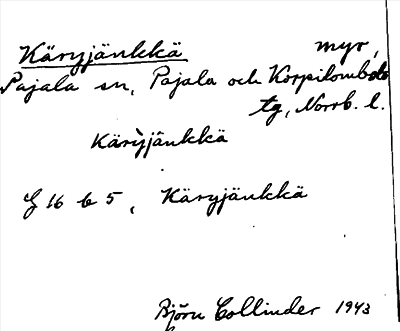 Käryjänkkä myr,
Pajala sn, Pajala och Korpilombolo
tg, Norrb. l.
Käry̓jänkkä
G 16 b 5, Käryjänkkä
Björn Collinder 1943